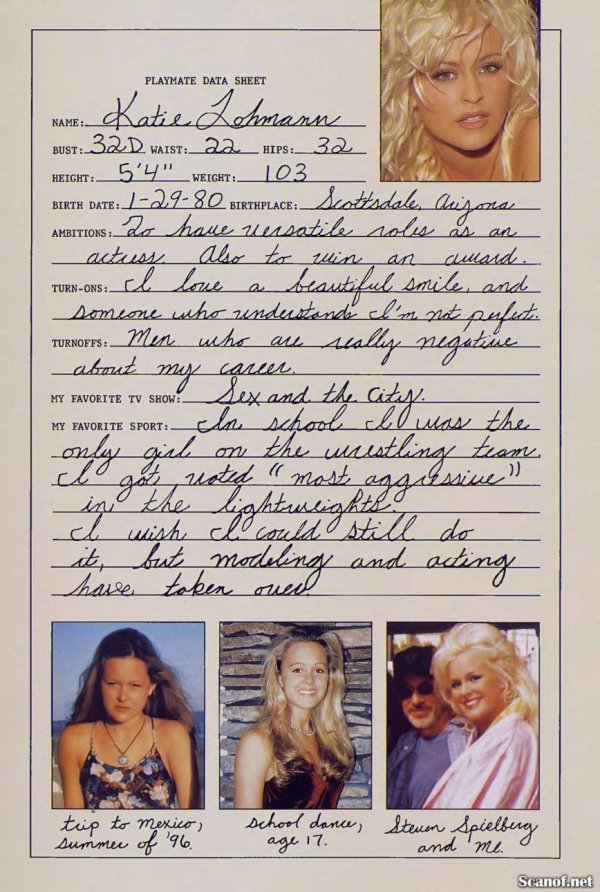 PLAYMATE DATA SHEET
NAME: Katie Lohmann
BUST: 32D WAIST: 22 HIPS: 32
HEIGHT: 5'4" WEIGHT: 103
BIRTH DATE: 1-29-80 BIRTHPLACE: Scottsdale, Arizona
AMBITIONS: To have versatile roles as an
actress. Also to win an award.
TURN-ONS: I love a beautiful smile, and
someone who understands I'm not perfect.
TURNOFFS: Men who are really negative
about my career.
MY FAVORITE TV SHOW: Sex and the City.
MY FAVORITE SPORT: In school I was the
only girl on the wrestling team.
I got voted "most aggressive"
in the lightweights.
I wish I could still do
it, but modeling and acting
have taken over.
trip to Mexico,
summer of '96.
school dance,
age 17.
Steven Spielberg
and me.
Scanof.net